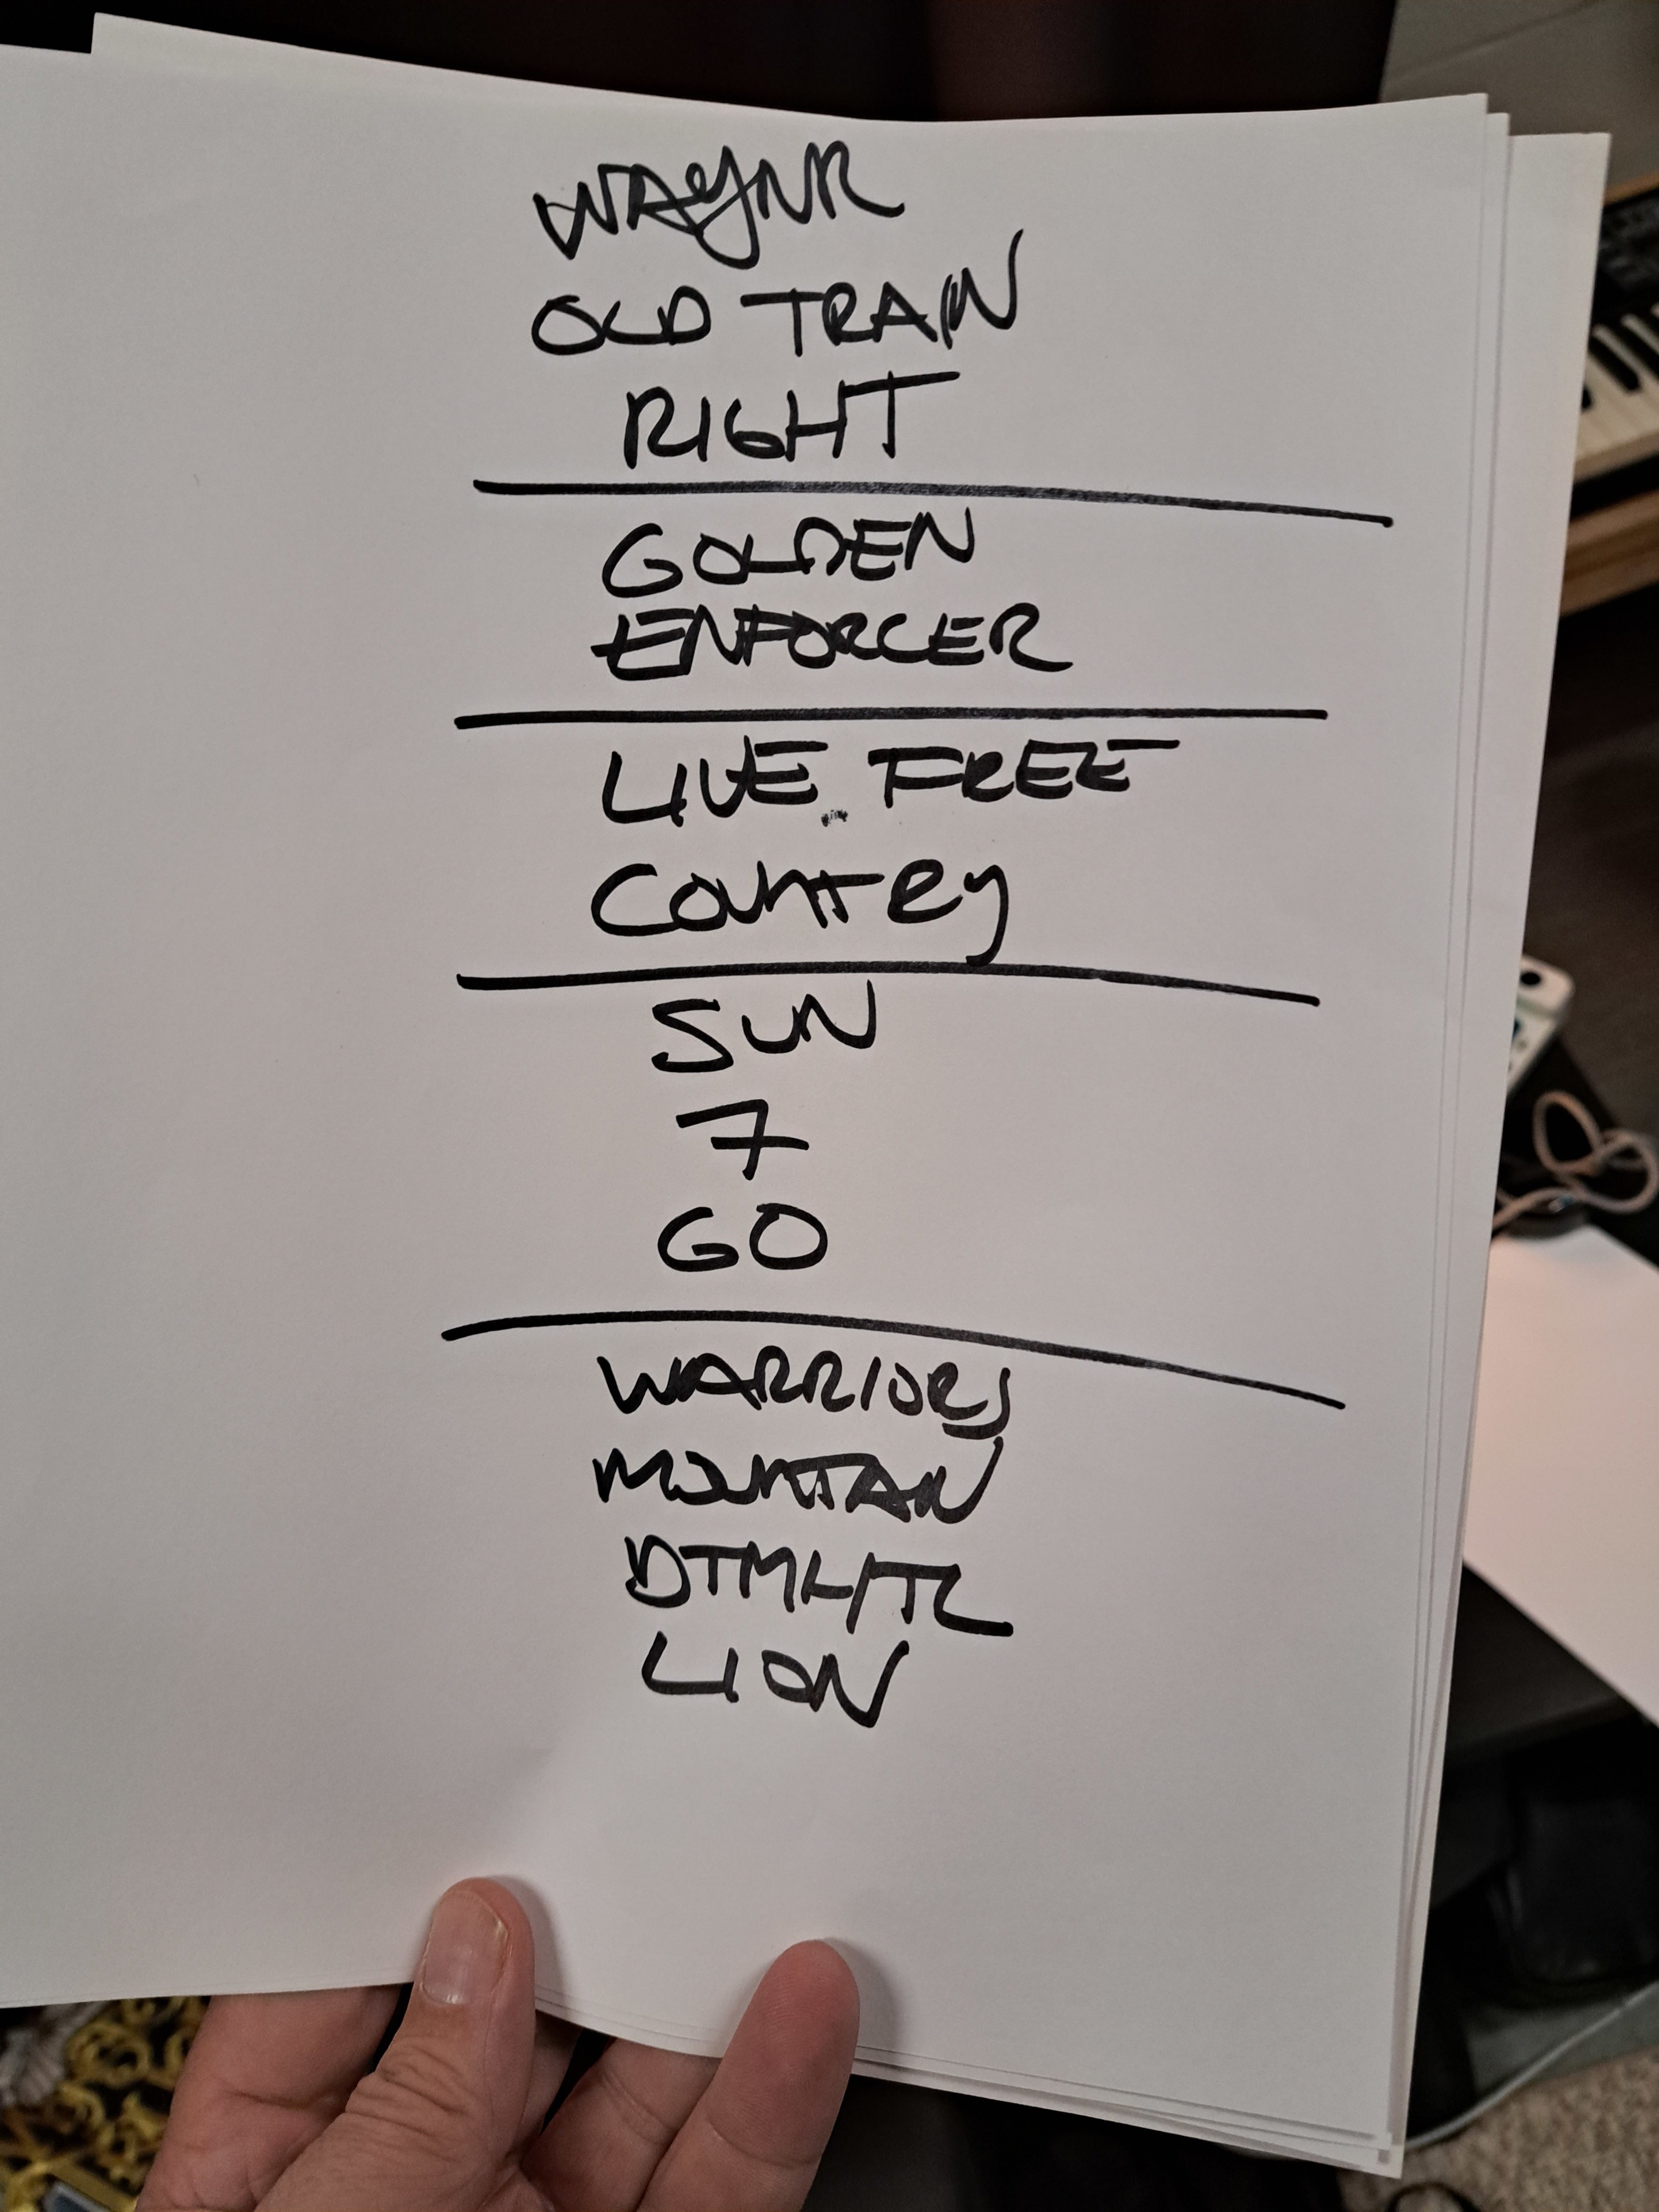 WAYNR
OLD TRAIN
RIGHT
GOLDEN
ENFORCER
LIVE FREE
COUNTRY
SUN
7
GO
WARRIORS
MOUNTAIN
DTMH/TL
LION